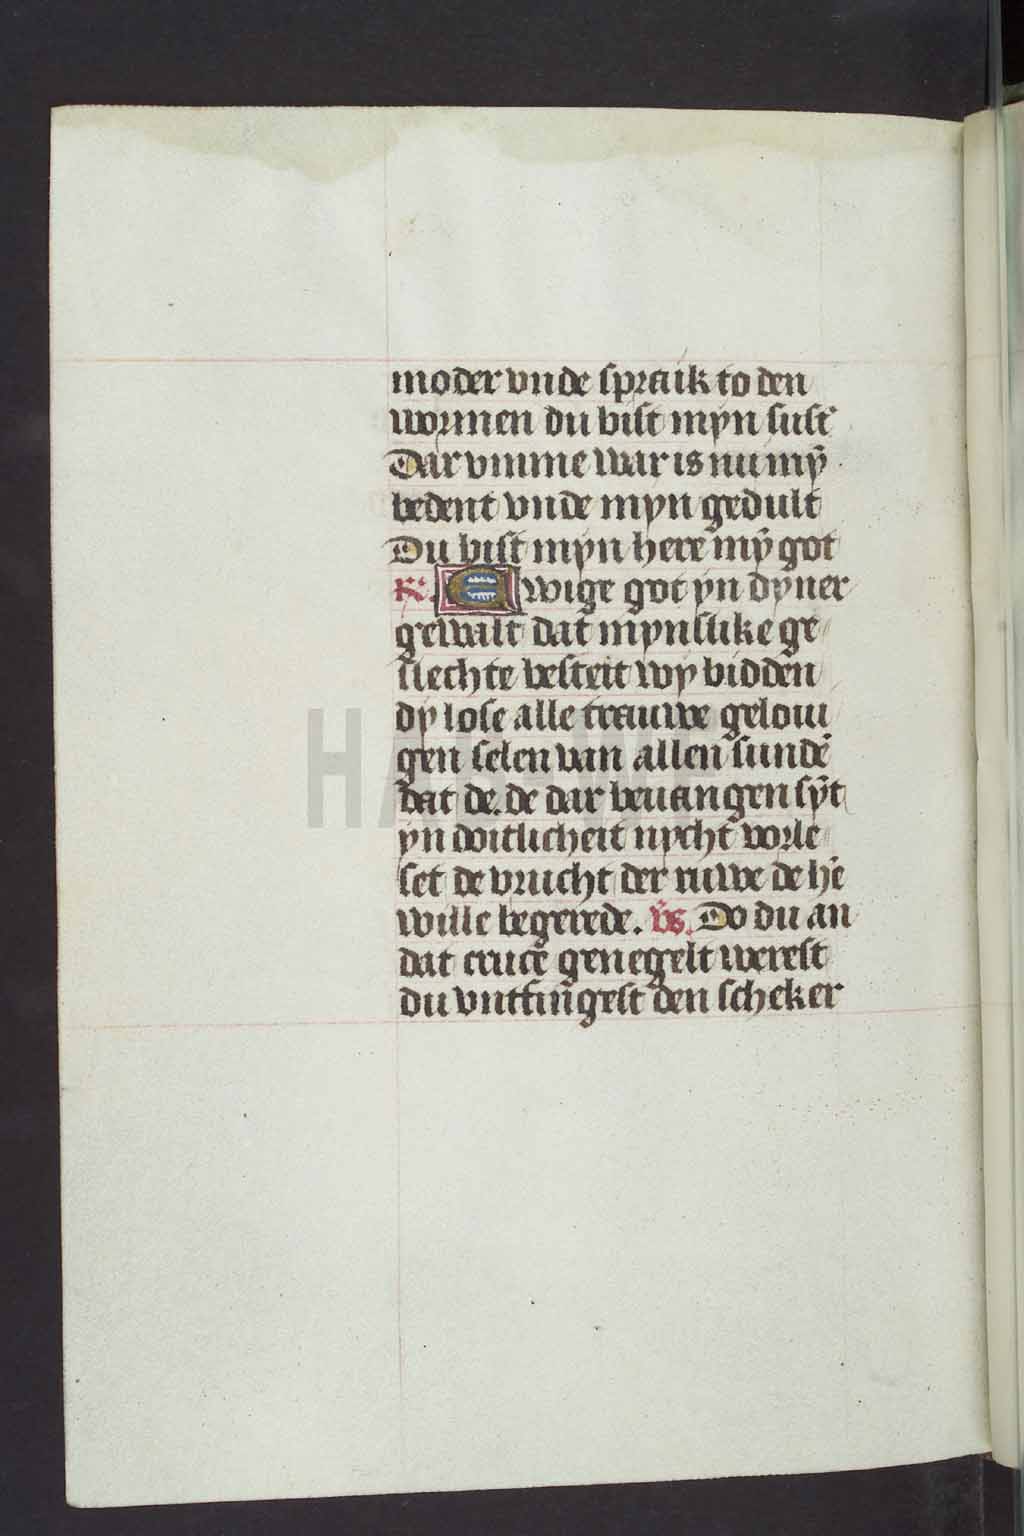 moder vnde spraik to den
wormen du bist mijn sust᷒
Dar vmme war is nu mȳ
bedent vnde myn gedult
Du bist myn here mȳ got
℟. Ewige got yn dyner
gewalt dat mynslike ge
slechte besteit wy bidden
dy lose alle trauwe geloui
gen selen van allen sundē
dat de. de dar beuangen sȳt
yn doitlicheit nycht vorle
set de vrucht der ruwe de hē
wille begerede. vs. Do du an
dat crucē genegelt werest
du vntfingest den scheker
HAB WF